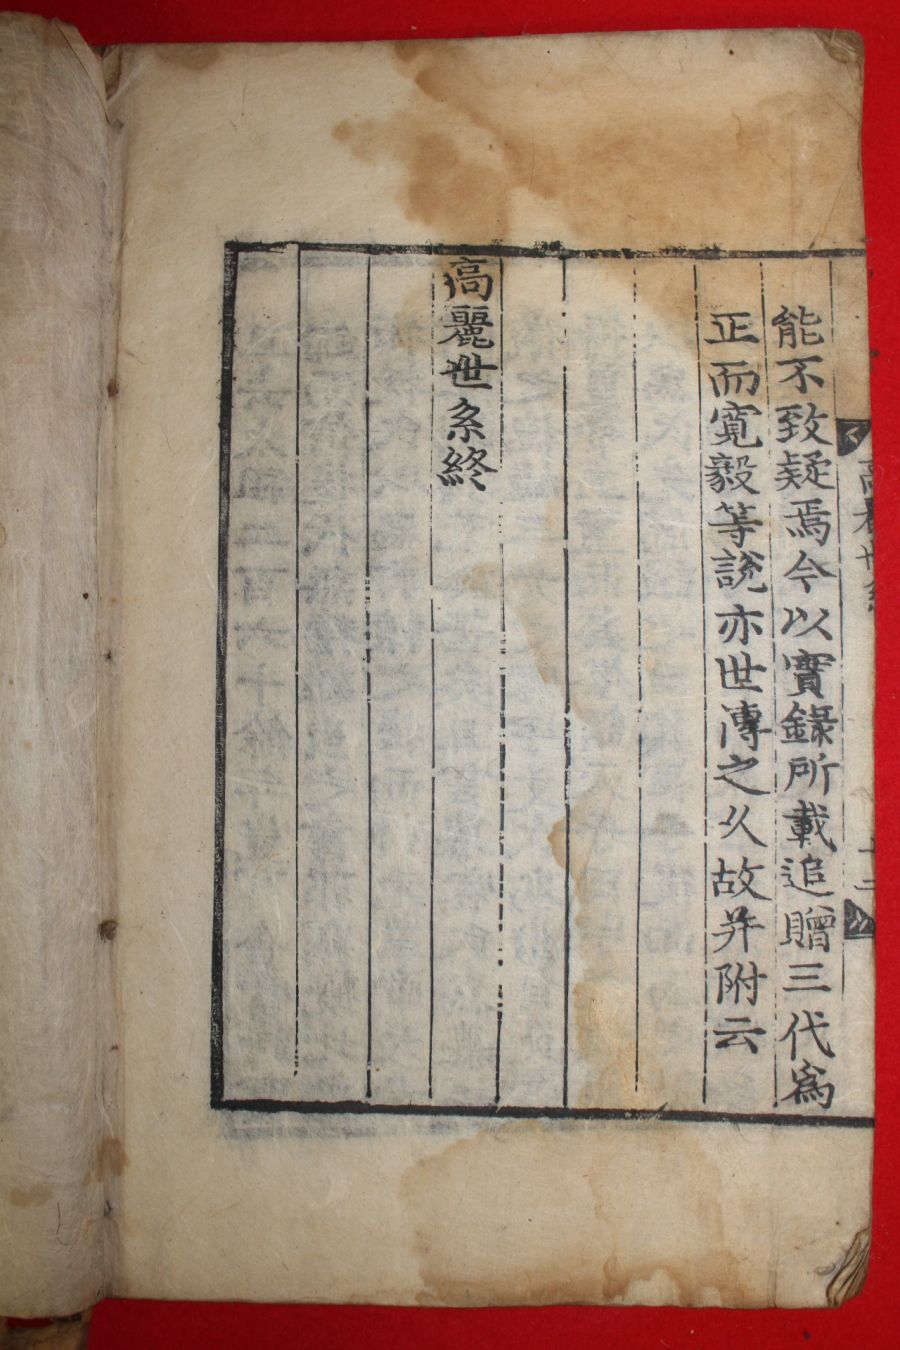 高麗世系
十二
能不致疑焉今以實錄所載追贈三代爲
正而寬毅等說亦世傳之久故并附云
高麗世系終